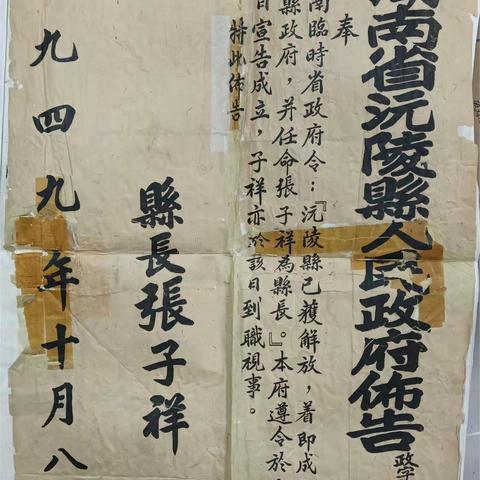 湖南省沅陵縣人民政府佈告
政字
奉
南臨時省政府令：『沅陵縣已獲解放，着即成
縣政府，并任命張子祥為縣長。』本府遵令於
日宣告成立，子祥亦於該日到職視事。
特此佈告
縣長張子祥
九四九年十月八